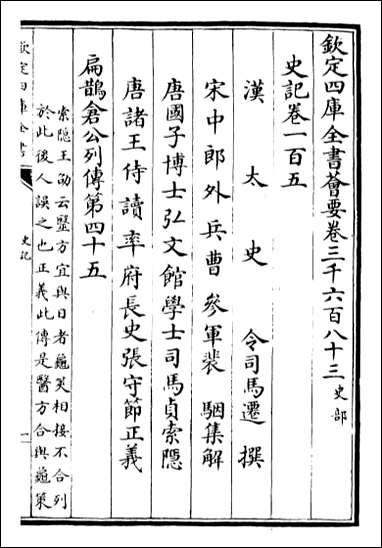 欽定四庫全書薈要卷三千六百八十三史部
史記卷一百五
漢太史令司馬遷撰
宋中郎外兵曹參軍裴駰集解
唐國子博士弘文館學士司馬貞索隱
唐諸王侍讀率府長史張守節正義
扁鵲倉公列傳第四十五
索隱王劭云醫方宜與日者龜筴相接不合列
於此後人誤之也正義此傳是醫方合與龜策
欽定四庫全書
史記
一